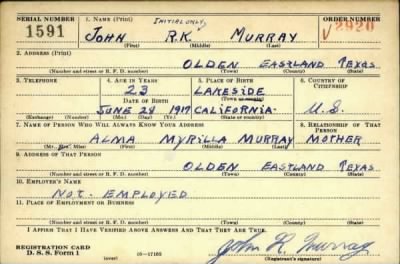 SERIAL NUMBER 1. NAME (Print) ORDER NUMBER
INITIAL ONLY
1591 JOHN R.K. MURRAY V2920
(First) (Middle) (Last)
2. ADDRESS (Print)
OLDEN EASTLAND TEXAS
(Number and street or R. F. D. number) (Town) (County) (State)
3. TELEPHONE 4. AGE IN YEARS 5. PLACE OF BIRTH 6. COUNTRY OF CITIZENSHIP
23 LAKESIDE
DATE OF BIRTH (Town or county)
JUNE 28 1917 CALIFORNIA U.S.
(Exchange) (Number) (Mo.) (Day) (Yr.) (State or country)
7. NAME OF PERSON WHO WILL ALWAYS KNOW YOUR ADDRESS 8. RELATIONSHIP OF THAT PERSON
ALMA MYRILLA MURRAY MOTHER
(Mr., Mrs., Miss) (First) (Middle) (Last)
9. ADDRESS OF THAT PERSON
OLDEN EASTLAND TEXAS
(Number and street or R. F. D. number) (Town) (County) (State)
10. EMPLOYER'S NAME
NOT. EMPLOYED
11. PLACE OF EMPLOYMENT OR BUSINESS
(Number and street or R. F. D. number) (Town) (County) (State)
I AFFIRM THAT I HAVE VERIFIED ABOVE ANSWERS AND THAT THEY ARE TRUE.
REGISTRATION CARD
D. S. S. Form 1 16—17105 John R. Murray
(Registrant's signature)